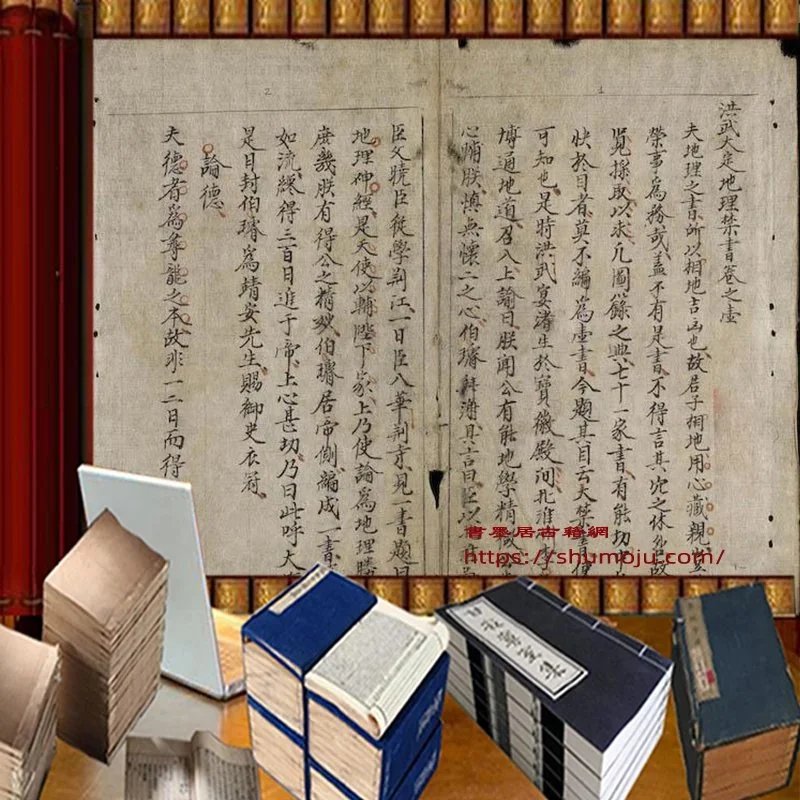 洪武大定地理禁書卷之壹
夫地理之書所以相地吉凶也故居子相地用心藏親
榮事為務哉蓋不有是書不得言其
覓採取以求凡圖籙之典七十一家書有能切
快於目者莫不編為壹書今題其目云大禁書
可知也是特洪武宴渚生於寶徽殿问
博通地道召入上諭曰朕聞公有能地學精
心輔朕慎無懷二之心伯璿拜渧具言曰臣以
臣父曉臣徒學荆江一日臣八華荆京見一書題曰
地理神經是天使以輔陛下家上乃使論為地理
庶幾朕有得公之精妙伯璿居帝側編成一書
如流繰得三百日進于帝上心甚切乃曰此呼大
是目封伯璿為靖安先生賜御史衣冠
論德
夫德者為尊龍之本故非一二日而得
1
2
書墨居古籍網
https://shumoju.com/